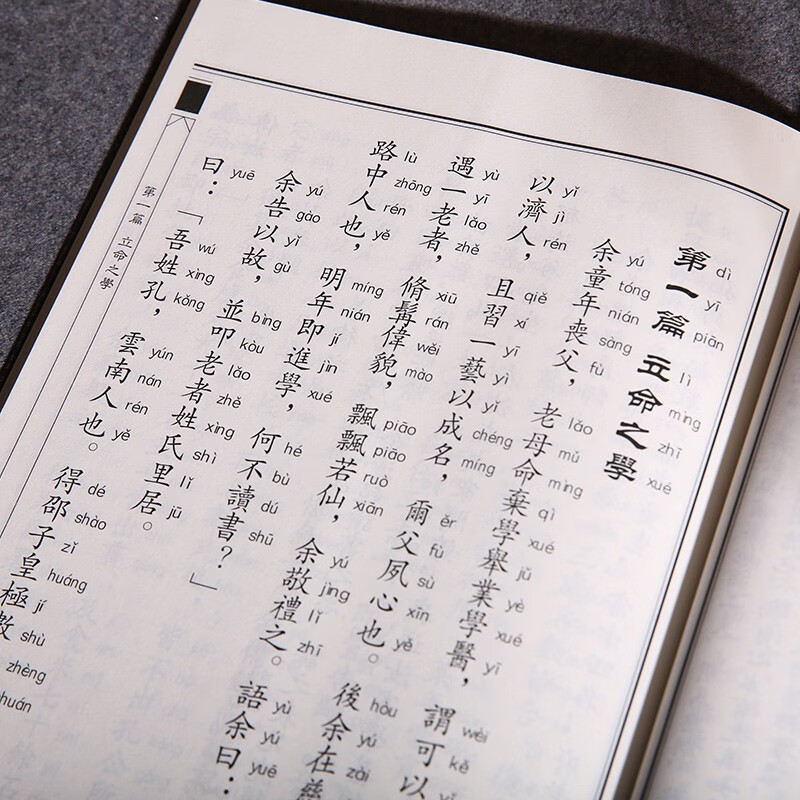 第一篇 立命之學
dì yī piān lì mìng zhī xué
余童年喪父，老母命棄學舉業學醫，謂可以
yú tóng nián sàng fù lǎo mǔ mìng qì xué jǔ yè xué yī wèi kě yǐ
以濟人，且習一藝以成名，爾父夙心也。後余在慈
yǐ jì rén qiě xí yī yì yǐ chéng míng ěr fù sù xīn yě hòu yú zài
遇一老者，脩髯偉貌，飄飄若仙，余敬禮之。語余曰：
yù yī lǎo zhě xiū rán wěi mào piāo piāo ruò xiān yú jìng lǐ zhī yù yú yuē
路中人也，明年即進學，何不讀書？」
lù zhōng rén yě míng nián jí jìn xué hé bù dú shū
余告以故，並叩老者姓氏里居。
yú gào yǐ gù bìng kòu lǎo zhě xìng shì lǐ jū
曰：「吾姓孔，雲南人也。得邵子皇極數
yuē wú xìng kǒng yún nán rén yě dé shào zǐ huáng jí shù zhèng chuán
第一篇 立命之學